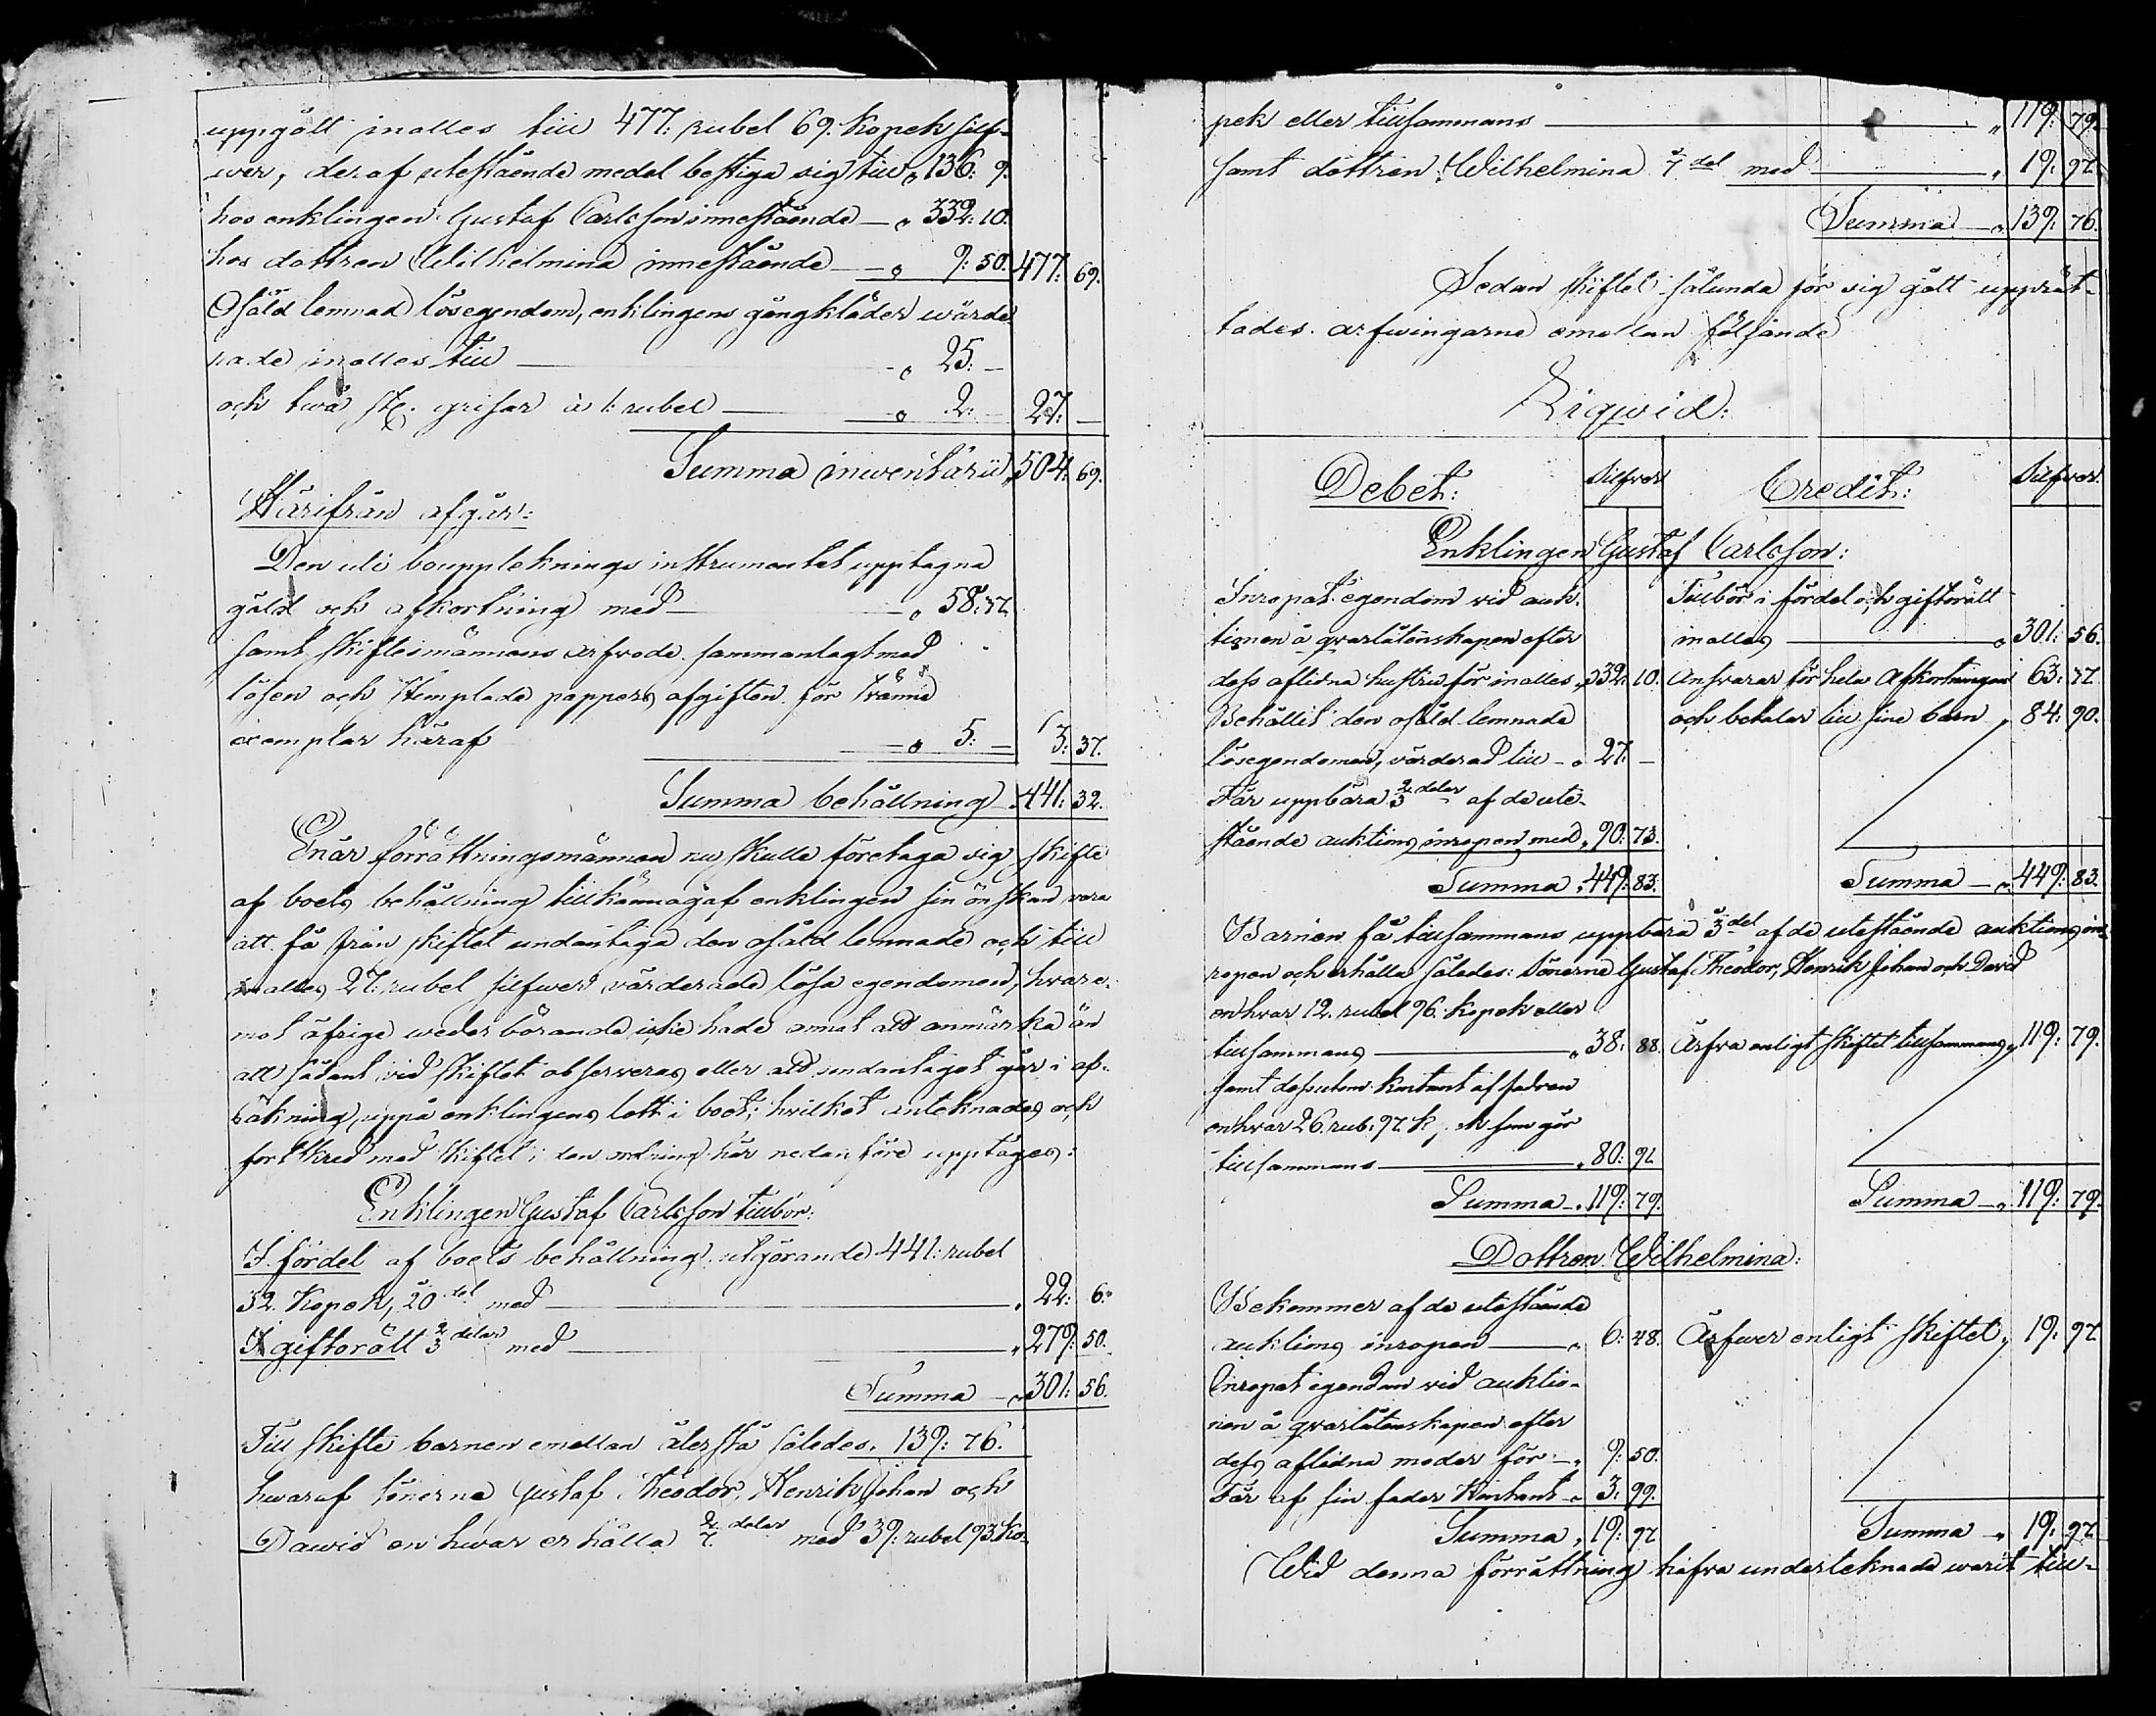 uppgått inalles till 477: rubel 69. Kopek silf-
wer, deraf utestående medel bestiga sig till „ 136: 9.
hos enklingen Gustaf Carlsson innestående — „ 332: 10.
hos dottren Wilhelmina innestående — „ 9: 50. 477: 69.
Osåld lemnad lösegendom, enklingens gångkläder wärde-
rade inalles till — „ 25: —
och twå st. grisar à 1: rubel — „ 2: — 27: —
Summa inwentarii „ 504: 69.
Härifrån afgår:
Den uti bouppteknings instrumentet upptagne
gäld och afkortning med — „ 58: 37.
samt skiftesmännens arfwode sammanlagt med
lösen och stemplade pappers afgiften för trenne
exemplar häraf — „ 5: — 63: 37.
Summa behållning „ 441: 32.
Enär förrättningsmännen nu skulle företaga sig skifte
af boets behållning tillkännagaf enklingen sin önskan vara
att få från skiftet undantaga den osåld lemnade och till
inalles 27: rubel silfwer värderade lösa egendomen, hware-
mot öfrige wederbörande icke hade annat att anmärka än
att sådant vid skiftet observeras eller att undantaget går i af-
räkning uppå enklingens lott i boet; hvilket anteknades och
fortskred med skiftet i den ordning här nedanföre upptages:
Enklingen Gustaf Carlsson tillbör:
I fördel af boets behållning utgörande 441: rubel
32. Kopek, 20 del med — „ 22: 6.
I giftorätt 2/3 delar med — „ 279: 50.
Summa — „ 301: 56.
Till skifte barnen emellan återstå således „ 139: 76.
hwaraf sönerna Gustaf Theodor, Henrik Johan och
Dawid en hwar erhålla 2/7 delar med 39: rubel 93. Ko-
pek eller tillsammans — „ 119: 79.
samt dottren Wilhelmina 1/7 del med — „ 19: 97.
Summa — „ 139: 76.
Sedan skiftet sålunda för sig gått upprät-
tades arfwingarne emellan följande
Liqwid:
Debet: Silfver Credit: Silfver.
Enklingen Gustaf Carlsson:
Inropat egendom vid auk- Tillbör i fördel och giftorätt
tionen å qvarlåtenskapen efter inalles — „ 301: 56.
dess aflidna hustru för inalles „ 332: 10. Ansvarar för hela Afkortningen 63: 37.
Behållit den osåld lemnade och betalar till sine barn „ 84: 90.
lösegendomen, värderad till — „ 27: —
Får uppbära 2/3 delar af de ute-
stående auktions inropen med „ 90: 73.
Summa „ 449: 83. Summa — „ 449: 83.
Barnen få tillsammans uppbära 1/3 del af de utestående auktions in-
ropen och erhåller således: Sönerne Gustaf Theodor, Henrik Johan och David
en hvar 12. rubel 96. kopek eller
tillsammans — „ 38: 88. Ärfva enligt skiftet tillsammans „ 119: 79.
samt dessutom kontant af fadren
en hvar 26. rub. 97. k, som gör
tillsammans — „ 80: 91.
Summa — „ 119: 79. Summa — „ 119: 79.
Dottren Wilhelmina:
Bekommer af de utestående
auktions inropen — „ 6: 48. Ärfwer enligt skiftet „ 19: 97.
Inropat egendom vid auktio-
nen å qvarlåtenskapen efter
dess aflidna moder för — „ 9: 50.
Får af sin fader Kontant — „ 3: 99.
Summa „ 19: 97. Summa — „ 19: 97.
Wid denna förrättning hafva underteknade warit till-